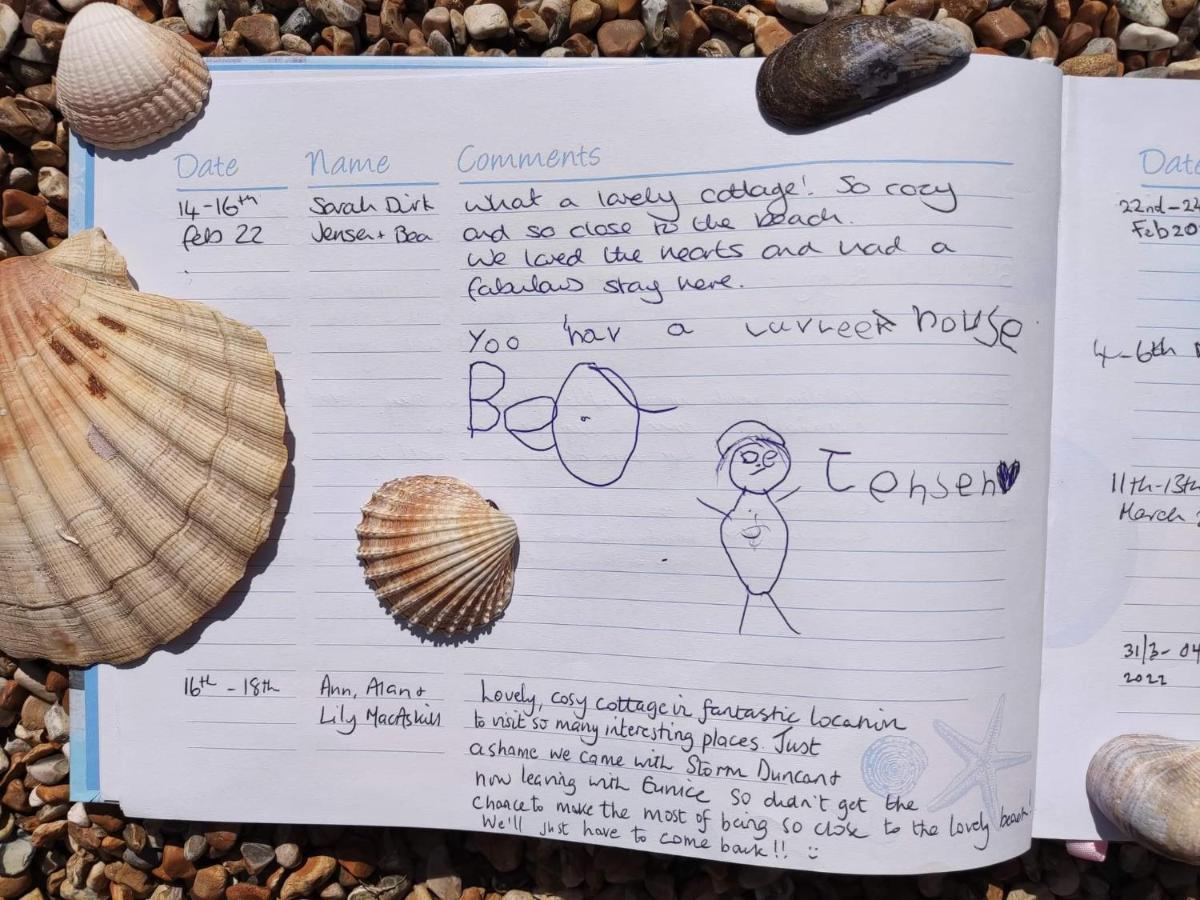 Date Name Comments
14-16th Sarah Dirk What a lovely cottage! So cozy
feb 22 Jensen + Bea and so close to the beach.
We loved the hearts and had a
fabulous stay here.
Yoo hav a house
Bea
Jensen
16th - 18th Ann, Alan + Lovely, cosy cottage in fantastic location
Lily MacAskill to visit so many interesting places. Just
a shame we came with Storm Duncan +
now leaving with Eunice so didn't get the
chance to make the most of being so close to the lovely beach!
We'll just have to come back!! :)
Date
22nd-24
Feb 20
4-6th
11th-13th
March
31/3- 04
2022